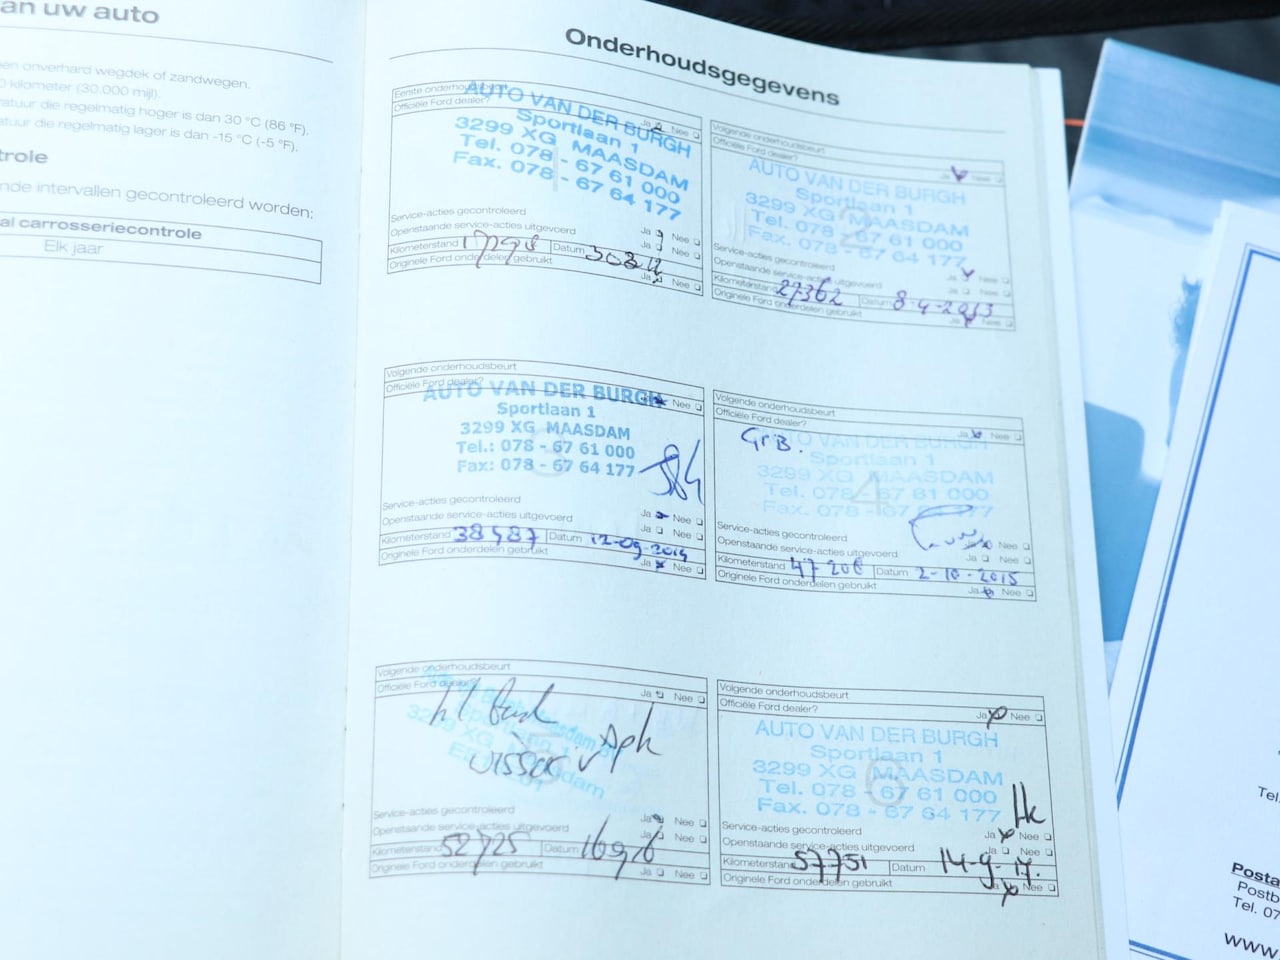 an uw auto
en onverhard wegdek of zandwegen.
0 kilometer (30.000 mijl).
atuur die regelmatig hoger is dan 30 °C (86 °F).
atuur die regelmatig lager is dan -15 °C (-5 °F).
trole
nde intervallen gecontroleerd worden:
al carrosseriecontrole
Elk jaar
Onderhoudsgegevens
Eerste onderhoudsbeurt
Officiële Ford dealer? Ja Nee
AUTO VAN DER BURGH
Sportlaan 1
3299 XG MAASDAM
Tel. 078 - 67 61 000
Fax. 078 - 67 64 177
Service-acties gecontroleerd Ja Nee
Openstaande service-acties uitgevoerd Ja Nee
Kilometerstand Datum
Originele Ford onderdelen gebruikt Ja Nee
Volgende onderhoudsbeurt
Officiële Ford dealer? Ja Nee
AUTO VAN DER BURGH
Sportlaan 1
3299 XG MAASDAM
Tel. 078 - 67 61 000
Fax. 078 - 67 64 177
2
Service-acties gecontroleerd Ja Nee
Openstaande service-acties uitgevoerd Ja Nee
Kilometerstand 27362 Datum 8-4-2013
Originele Ford onderdelen gebruikt Ja Nee
Volgende onderhoudsbeurt
Officiële Ford dealer? Nee
AUTO VAN DER BURGH
Sportlaan 1
3299 XG MAASDAM
Tel.: 078 - 67 61 000
Fax: 078 - 67 64 177
3
Service-acties gecontroleerd Ja Nee
Openstaande service-acties uitgevoerd Ja Nee
Kilometerstand 38587 Datum 12-09-2014
Originele Ford onderdelen gebruikt Ja Nee
Volgende onderhoudsbeurt
Officiële Ford dealer? Ja Nee
GrB.
AUTO VAN DER BURGH
Sportlaan 1
3299 XG MAASDAM
Tel. 078 - 67 61 000
Fax. 078 - 67 64 177
4
Service-acties gecontroleerd Nee
Openstaande service-acties uitgevoerd Ja Nee
Kilometerstand 47206 Datum 2-10-2015
Originele Ford onderdelen gebruikt Ja Nee
Volgende onderhoudsbeurt
Officiële Ford dealer? Ja Nee
Service-acties gecontroleerd Ja Nee
Openstaande service-acties uitgevoerd Ja Nee
Kilometerstand 52725 Datum 16 9 16
Originele Ford onderdelen gebruikt Ja Nee
Volgende onderhoudsbeurt
Officiële Ford dealer? Ja Nee
AUTO VAN DER BURGH
Sportlaan 1
3299 XG MAASDAM
Tel. 078 - 67 61 000
Fax. 078 - 67 64 177
6
Hk
Service-acties gecontroleerd Ja Nee
Openstaande service-acties uitgevoerd Ja Nee
Kilometerstand 57751 Datum 14-9-17.
Originele Ford onderdelen gebruikt Ja Nee
Tel.
Posta
Postb
Tel. 07
www.